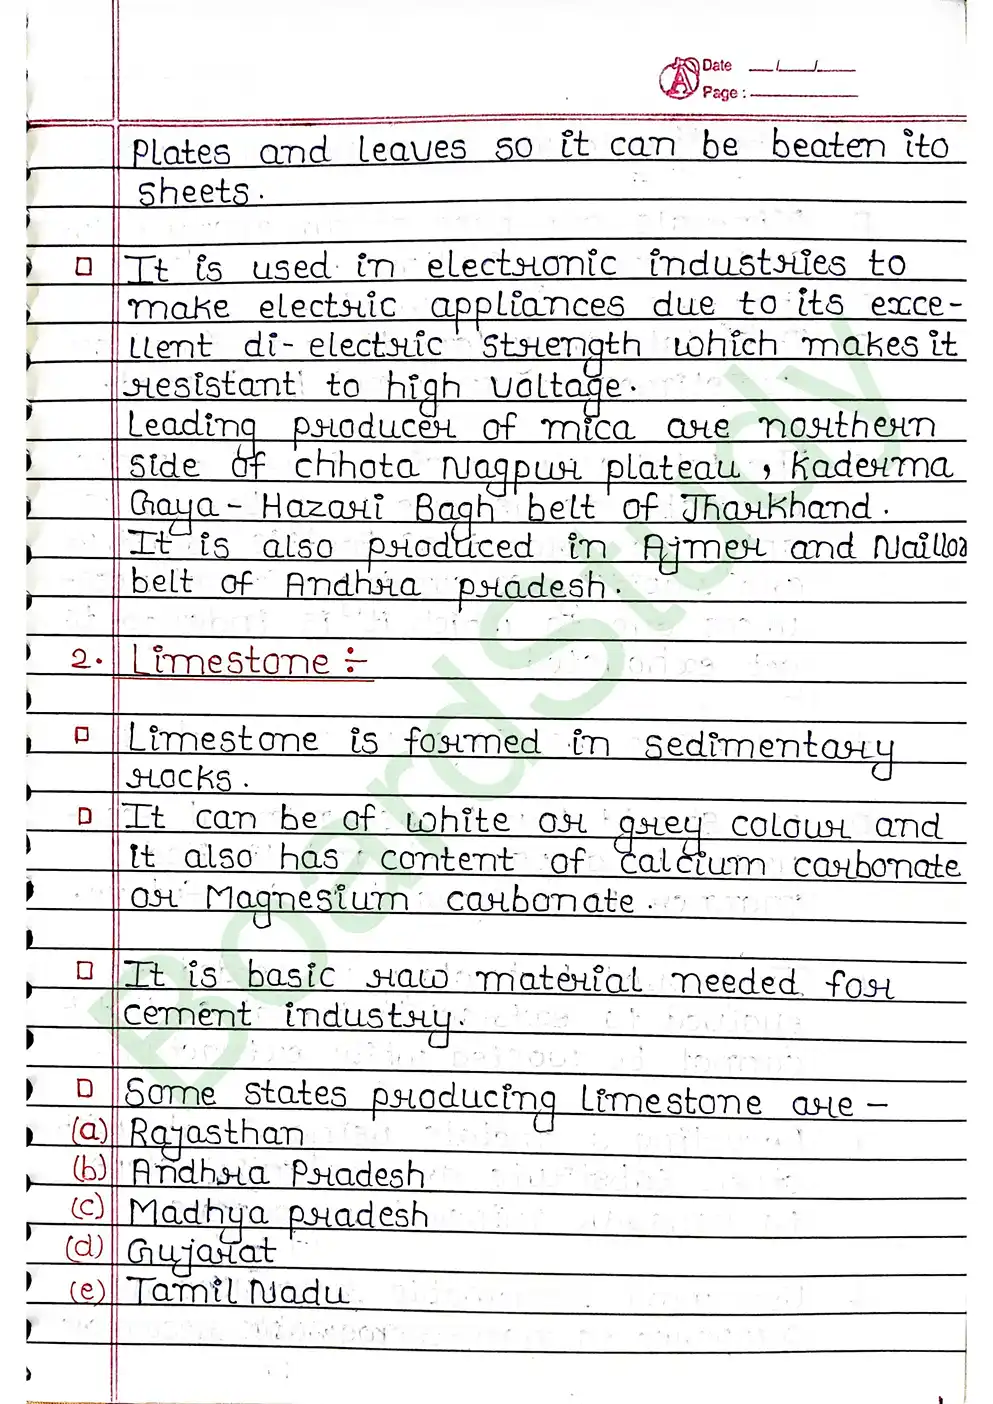 Date __/__/__
Page : ______
Plates and leaves so it can be beaten ito
sheets.
It is used in electronic industries to
make electric appliances due to its exce-
llent di-electric strength which makes it
resistant to high voltage.
Leading producer of mica are northern
side of chhota Nagpur plateau, Kaderma
Gaya - Hazari Bagh belt of Jharkhand.
It is also produced in Ajmer and Naillor
belt of Andhra pradesh.
2. Limestone ÷
Limestone is formed in sedimentary
rocks.
It can be of white or grey colour and
it also has content of calcium carbonate
or Magnesium carbonate.
It is basic raw material needed for
cement industry.
Some states producing Limestone are -
(a) Rajasthan
(b) Andhra Pradesh
(c) Madhya pradesh
(d) Gujarat
(e) Tamil Nadu
BoardStudy